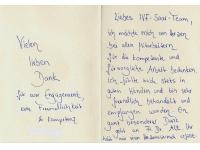 Vielen
lieben
Dank
für ihr Engagement,
Freundlichkeit
& Kompetenz
Liebes IVF-Saar-Team,
ich möchte mich von Herzen
bei allen Mitarbeitern
für die kompetente und
fürsorgliche Arbeit bedanken
ich fühlte mich stets in
guten Händen und bin sehr
freundlich, behandelt und
empfangen worden. Ein
ganz besonderer Dank
geht an Fr. Dr. Alt. Ihr